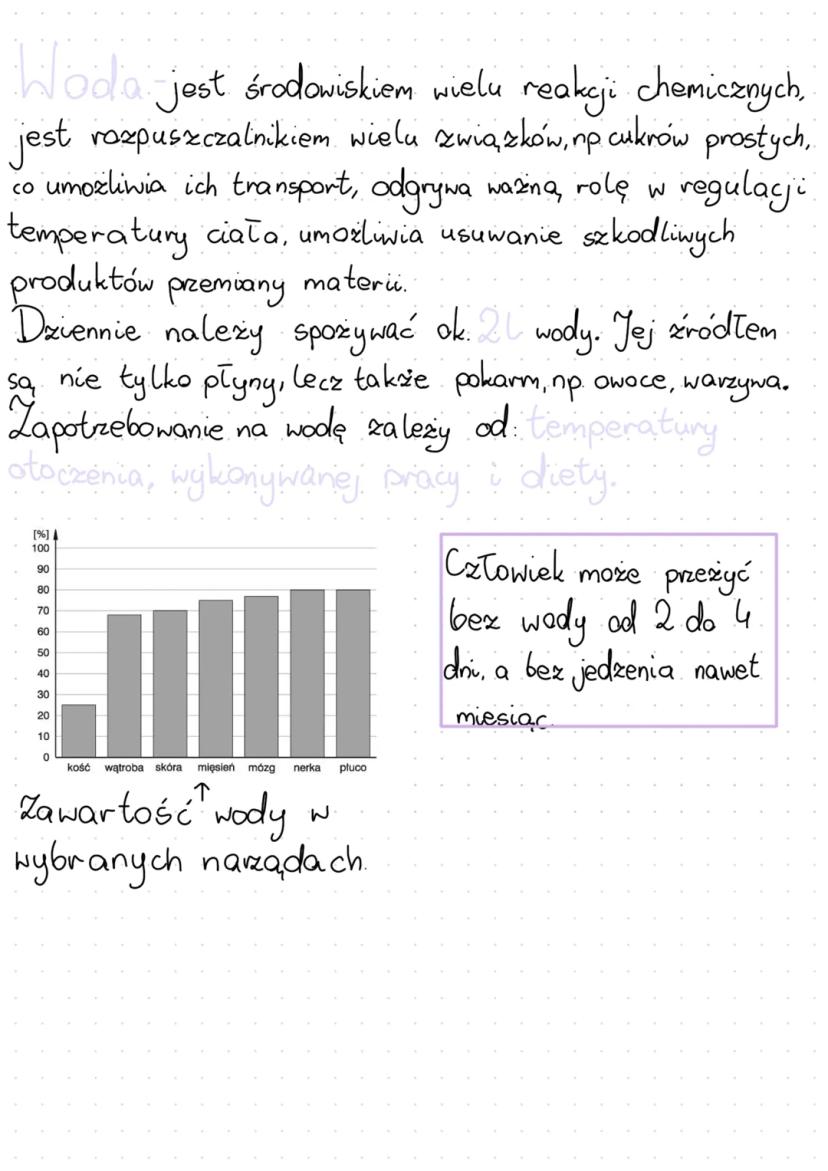 Woda - jest środowiskiem wielu reakcji chemicznych,
jest rozpuszczalnikiem wielu związków, np. cukrów prostych,
co umożliwia ich transport, odgrywa ważną rolę w regulacji
temperatury ciała, umożliwia usuwanie szkodliwych
produktów przemiany materii.
Dziennie należy spożywać ok. 2l wody. Jej źródłem
są nie tylko płyny, lecz także pokarm, np. owoce, warzywa.
Zapotrzebowanie na wodę zależy od: temperatury
otoczenia, wykonywanej pracy i diety.
[%]
100
90
80
70
60
50
40
30
20
10
0
kość wątroba skóra mięsień mózg nerka płuco
Zawartość wody w
wybranych narządach.
Człowiek może przeżyć
bez wody od 2 do 4
dni, a bez jedzenia nawet
miesiąc.